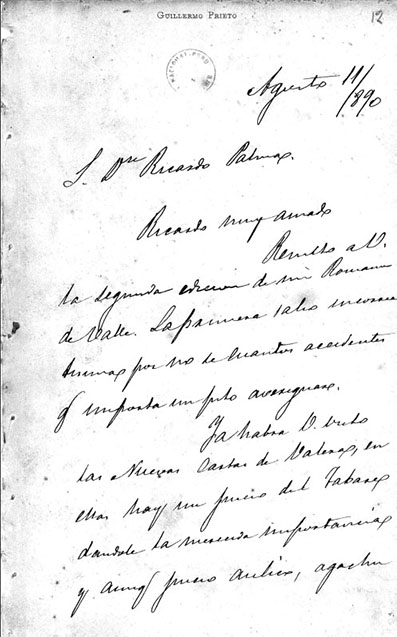 GUILLERMO PRIETO
12
Agosto 11/
/890
S. Dn Ricardo Palma.
Ricardo muy amado
Remito a V.
la segunda edicion de mi Romance
de Valle. La primera salio incorrec
tisima por no se cuantos accidentes
q importa un pito averiguar.
Ya habra V. visto
las Nuevas Cartas de Valera, en
ellas hay un juicio del Tabaré
dandole la merecida importancia
y aunq juicio